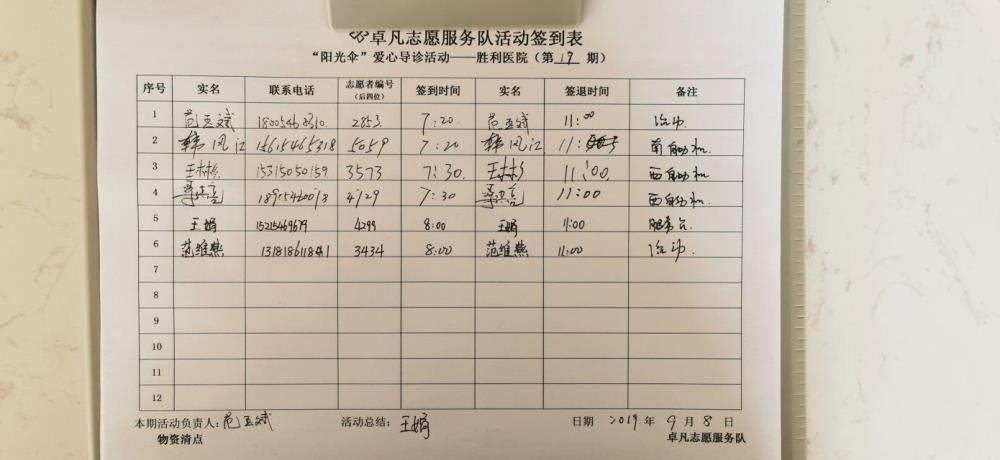 卓凡志愿服务队活动签到表
“阳光伞”爱心导诊活动——胜利医院（第 19 期）
序号 实名 联系电话 志愿者编号（后四位） 签到时间 实名 签退时间 备注
1 范玉斌 2853 7:20. 范玉斌 11:00
2 韩风江 15615465318 5059 7:20 韩风江 11: 自助机.
3 王林杉 15315050159 3573 7:30. 王林杉 11:00. 西自助机
4 4129 7:30 11:00 西自助机.
5 王娟 15215469679 4299 8:00 王娟 11:00 服务台
6 范维燕 13181861841 3434 8:00 范维燕 11:00
7
8
9
10
11
12
本期活动负责人：范玉斌 活动总结：王娟 日期 2019年 9月 8日
物资清点 卓凡志愿服务队